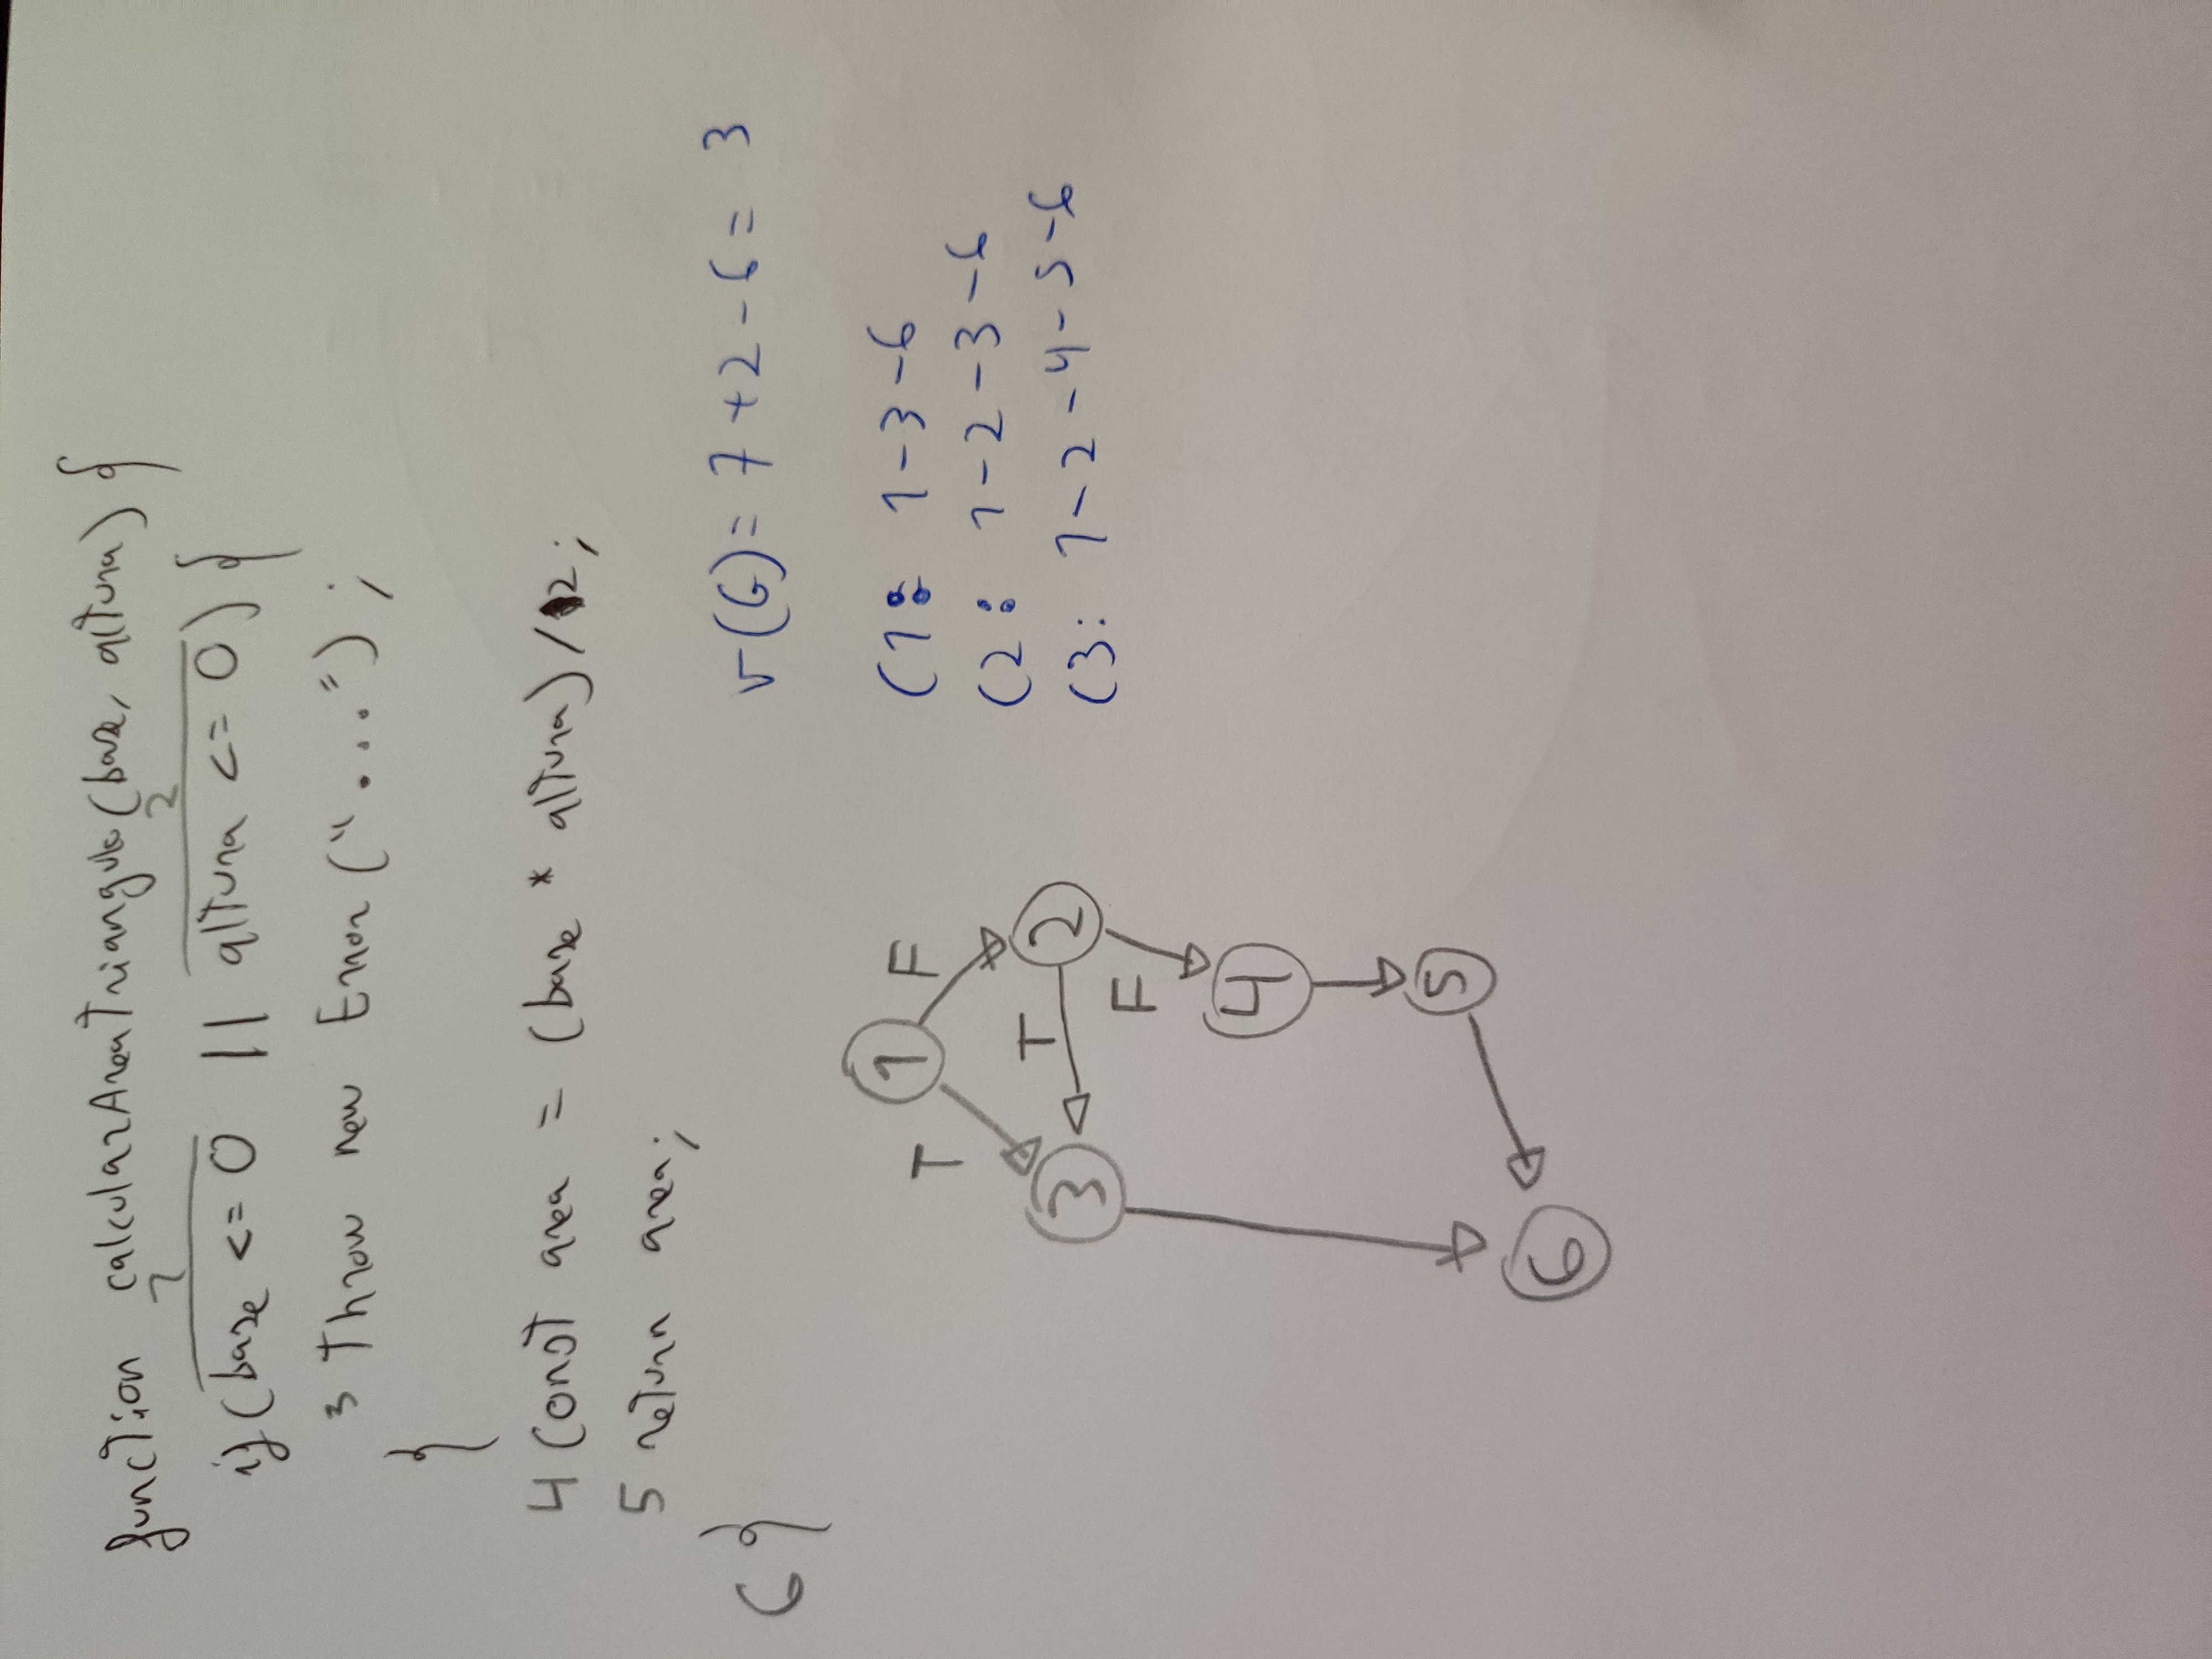 function calcularAreaTriangulo(base, altura) {
1 2
if (base <= 0 || altura <= 0) {
3 Throw new Error ("...");
}
4 Const area = (base * altura) / 2;
5 return area;
6 }
v(G) = 7 + 2 - 6 = 3
C1: 1-3-6
C2: 1-2-3-6
C3: 1-2-4-5-6
1
T F
3 T 2
F
4
5
6